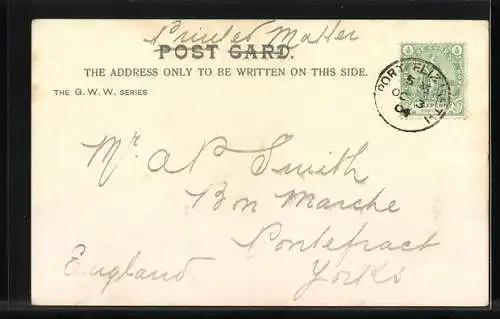 Printed Matter
POST CARD.
THE ADDRESS ONLY TO BE WRITTEN ON THIS SIDE.
THE G. W. W. SERIES
PORT ELIZABETH
OC 3
04
Mr. A P Smith
Bon Marche
Pontefract
England. Yorks